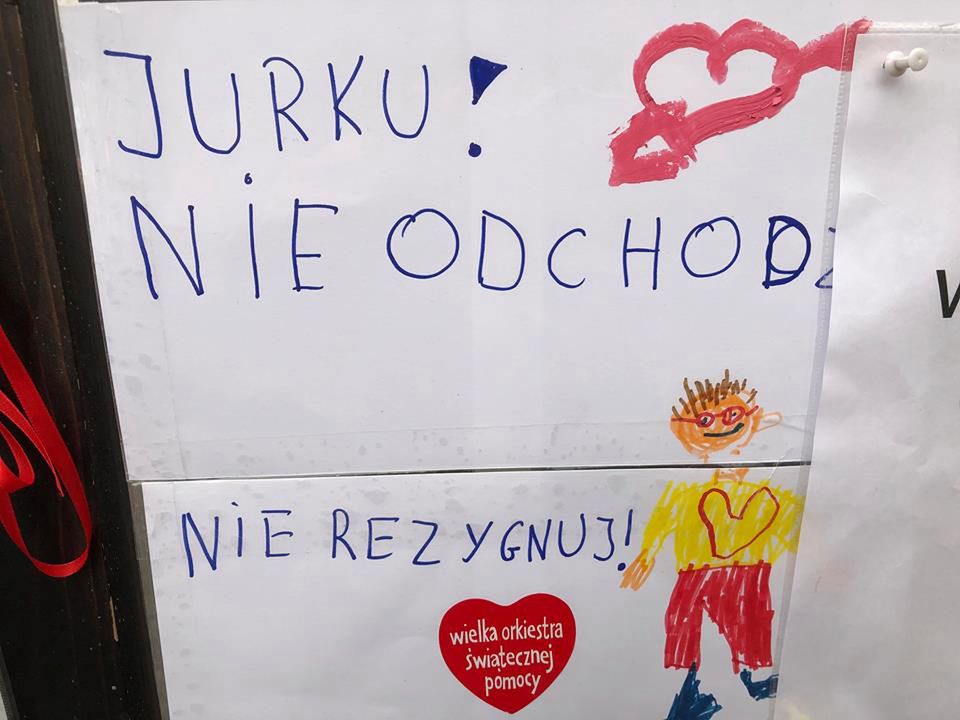 JURKU!
NIE ODCHODZ
NIE REZYGNUJ!
wielka orkiestra
świątecznej
pomocy